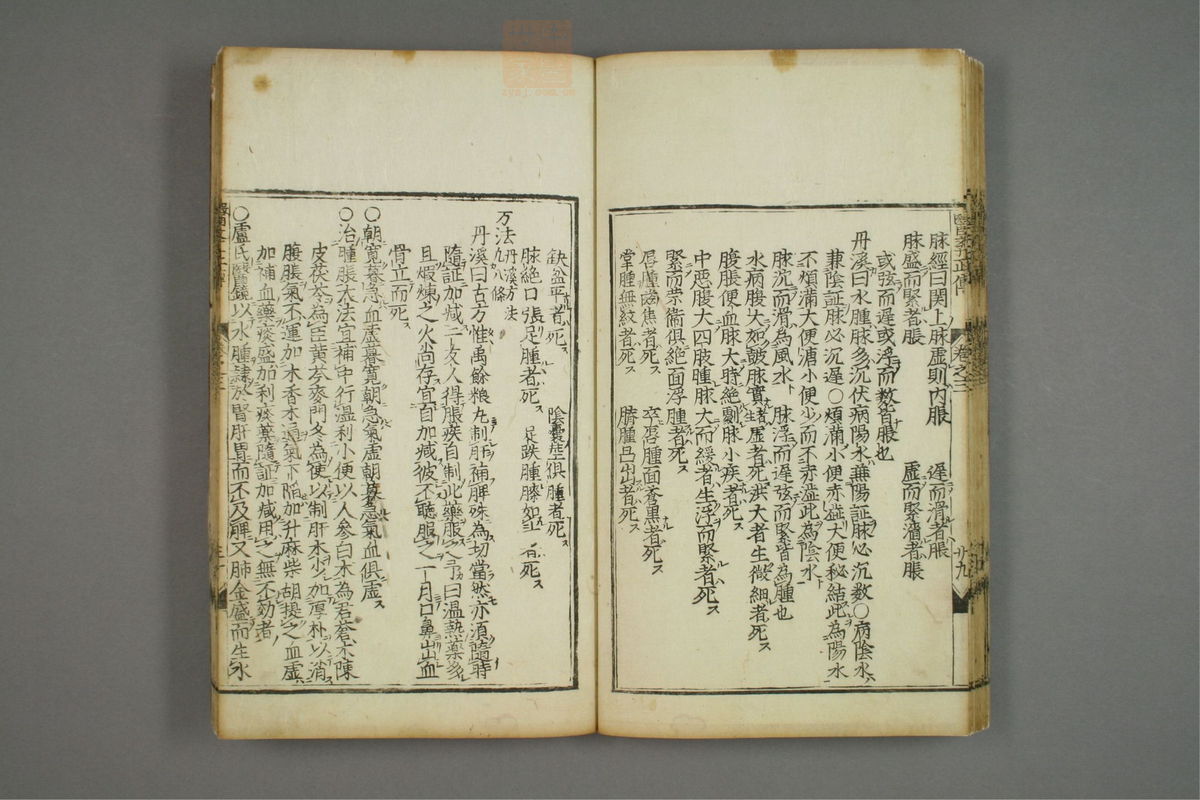 脉經曰関上脉虚則内脹　遅而滑者脹
脉盛而緊者脹　虚而緊濇者脹
或弦而遅或浮而数皆脹也
丹溪曰水腫脉多沉伏病陽水兼陽証脉必沉数〇病陰水
兼陰証脉必沉遅〇煩滿小便赤澁大便秘結此為陽水
不煩滿大便溏小便少而不赤澁此為陰水
脉沉而滑為風水　脉浮而遅弦而緊皆為腫也
水病腹大如皷脉實者生虚者死洪大者生微細者死
腹脹便血脉大時絶劇脉小疾者死
中惡腹大四肢腫脉大而緩者生浮而緊者死
緊而栄衛俱絶面浮腫者死
唇腫齒焦者死　卒唇腫面蒼黒者死
掌腫無紋者死　臍腫凸出者死
缺盆平者死　陰嚢莖俱腫者死
脉絶口張足腫者死　足趺腫膝如　者死
方法丹溪方法凡八條
丹溪曰古方惟禹餘粮丸制肝補脾殊為切當然亦須隨時
隨証加减一友人得脹疾自制此藥服之予曰温熱藥多
且煆煉之火尚存宜自加减彼不聽服之一月口鼻出血
骨立而死
〇朝寛暮急血虚暮寛朝急氣虚朝暮急氣血俱虚
〇治腫脹大法宜補中行温利小便以人参白朮為君蒼朮陳
皮茯苓為臣黄芩麥門冬為使以制肝木少加厚朴以消
腹脹氣不運加木香木通氣下陥加升麻柴胡提之血虚
加補血藥痰盛加利痰藥隨証加减用之無不効者
〇盧氏醫鏡以水腫隷於腎肝胃而不及脾又肺金盛而生水